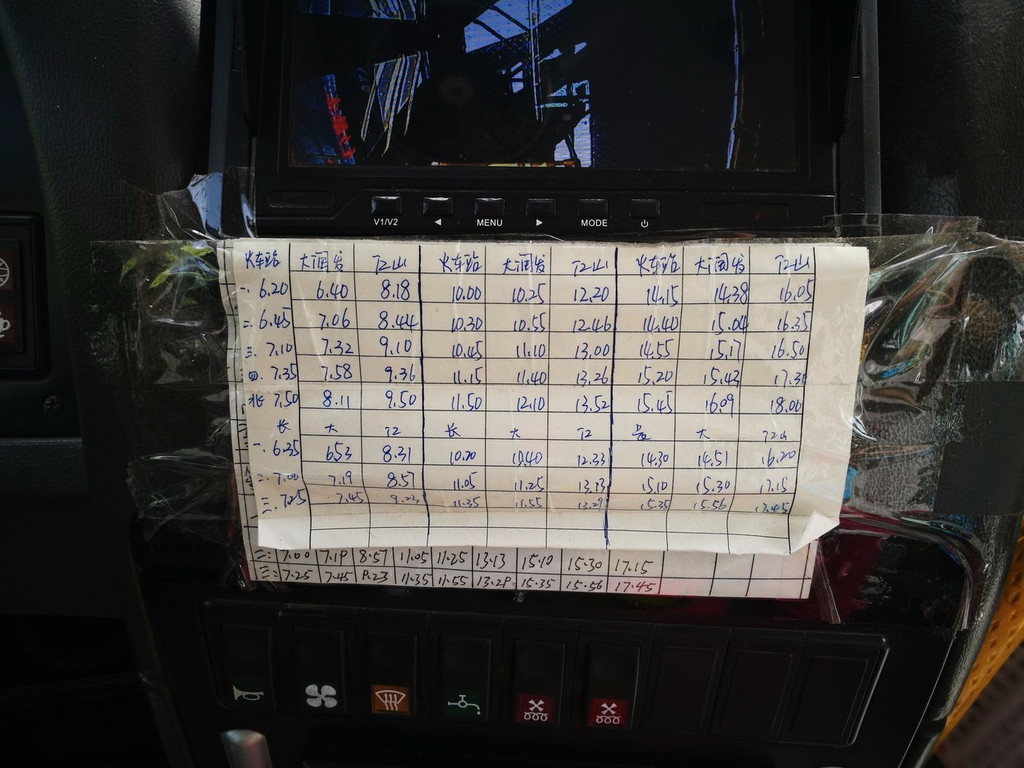 V1/V2 ◄ MENU ► MODE
火车站 大润发 江山 火车站 大润发 江山 火车站 大润发 江山
一. 6.20 6.40 8.18 10.00 10.25 12.20 14.15 14.38 16.05
二. 6.45 7.06 8.44 10.30 10.55 12.46 14.40 15.04 16.35
三. 7.10 7.32 9.10 10.45 11.10 13.00 14.55 15.17 16.50
四. 7.35 7.58 9.36 11.15 11.40 13.26 15.20 15.43 17.31
7.50 8.11 9.50 11.50 12.10 13.52 15.45 16.09 18.00
长 大 江 长 大 江 大 江山
一. 6.35 653 8.31 10.20 10.40 12.33 14.30 14.51 16.20
二. 7.00 7.19 8.57 11.05 11.25 13.13 15.10 15.30 17.15
三. 7.25 7.45 9.23 11.35 11.55 13.29 15.35 15.56 17.45
二: 7.00 7.19 8.57 11.05 11.25 13.13 15.10 15.30 17.15
三: 7.25 7.45 9.23 11.35 11.55 13.29 15.35 15.56 17.45